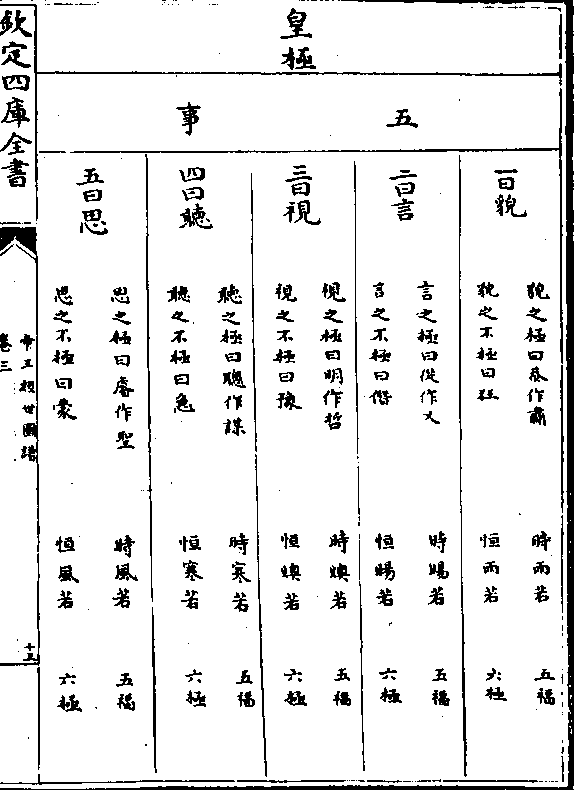 皇極
五事
一曰貌
貌之極曰恭作肅
時雨若
五福
貌之不極曰狂
恒雨若
六極
二曰言
言之極曰從作乂
時暘若
五福
言之不極曰僭
恒暘若
六極
三曰視
視之極曰明作哲
時燠若
五福
視之不極曰豫
恒燠若
六極
四曰聽
聽之極曰聰作謀
時寒若
五福
聽之不極曰急
恒寒若
六極
五曰思
思之極曰睿作聖
時風若
五福
思之不極曰蒙
恒風若
六極
欽定四庫全書
帝王經世圖譜
卷三
十五